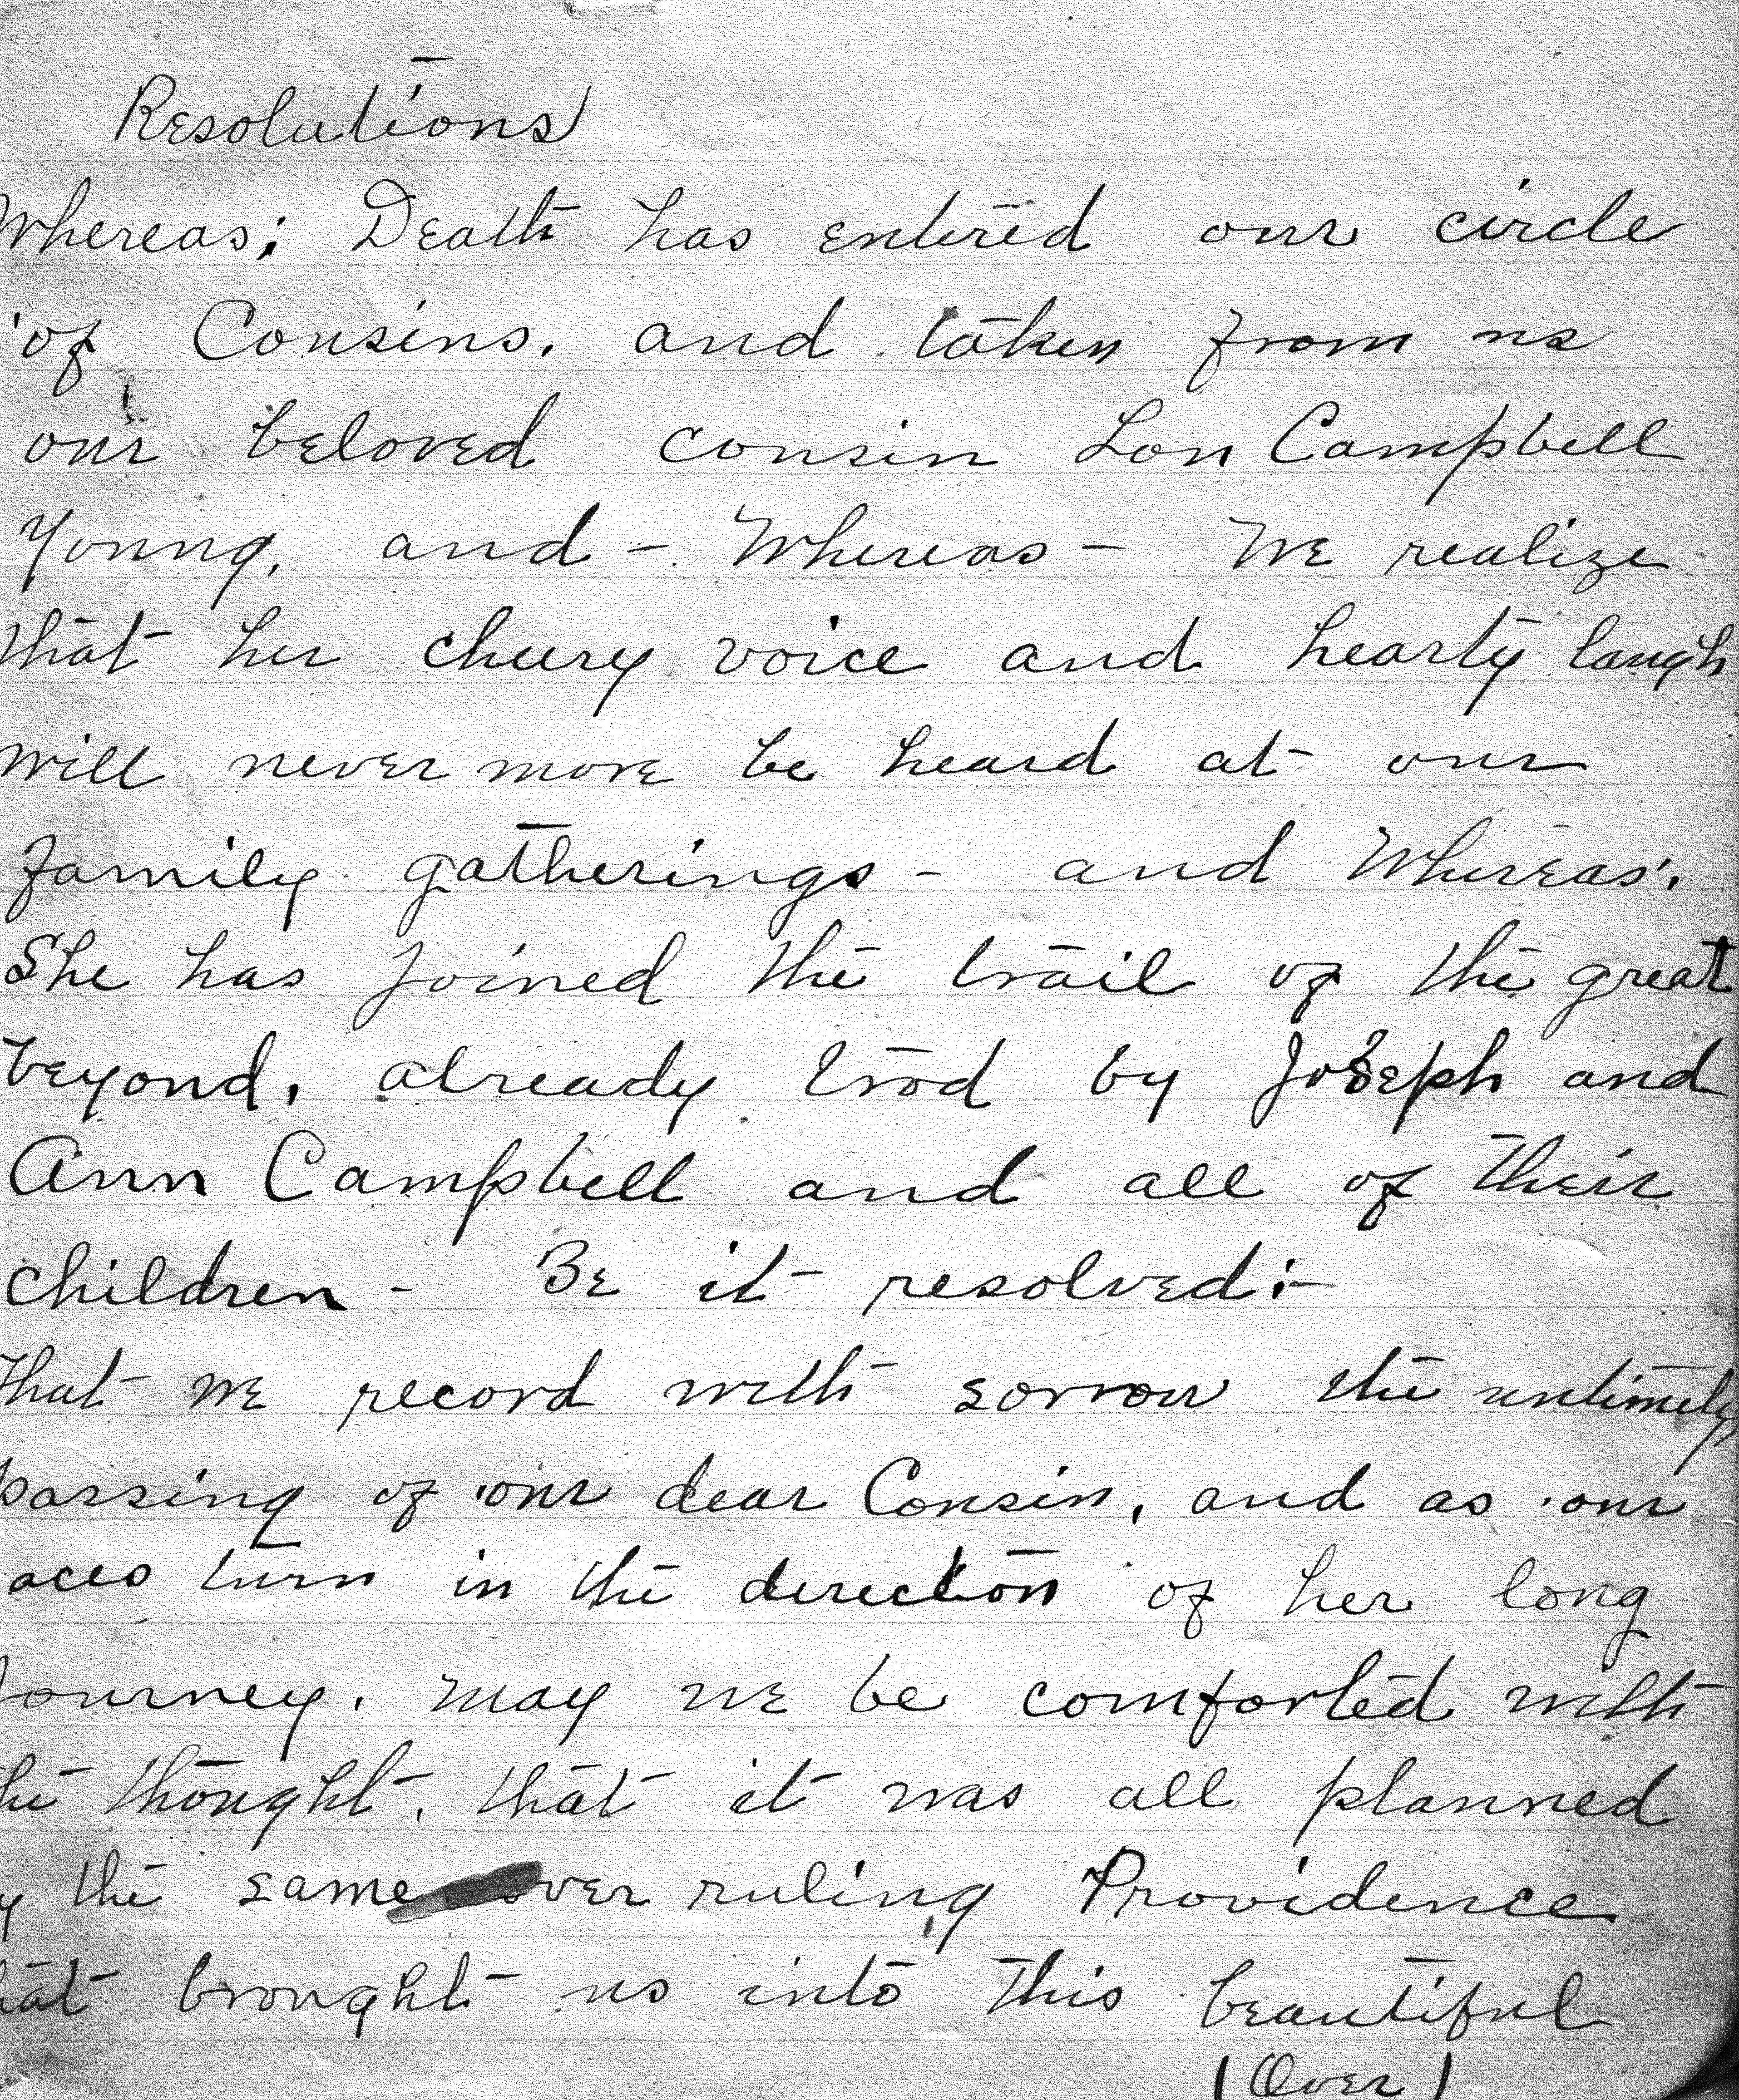 Resolutions
Whereas; Death has entered our circle
of Cousins, and taken from us
our beloved cousin Lou Campbell
Young, and - Whereas - We realize
that her cheery voice and hearty laugh
will never more be heard at our
family gatherings - and Whereas,
She has joined the trail of the great
beyond, already trod by Joseph and
Ann Campbell and all of their
children - Be it resolved:-
That we record with sorrow the untimely
passing of our dear Cousin, and as our
aces turn in the direction of her long
Journey, may we be comforted with
the thought, that it was all planned
y the same over ruling Providence
hat brought us into this beautiful
(Over)